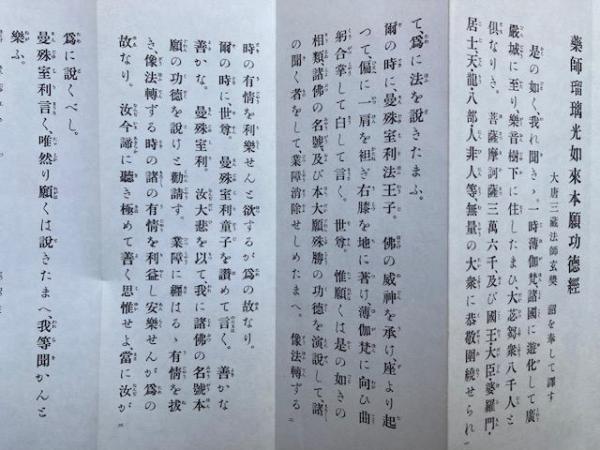 藥師瑠璃光如來本願功德經
大唐三藏法師玄奘 詔を奉して譯す
是の如く我れ聞きゝ。一時薄伽梵諸國に遊化して廣
嚴城に至り、樂音樹下に住したまひ大苾芻衆八千人と
倶なりき。菩薩摩訶薩三萬六千、及び國王大臣婆羅門・
居士天龍・八部・人非人等無量の大衆に恭敬圍繞せられ
て爲に法を説きたまふ。
爾の時に、曼殊室利法王子。佛の威神を承け、座より起
つて偏に一肩を袒ぎ右膝を地に著け薄伽梵に向ひ曲
躬合掌して白して言く。世尊。惟願くは是の如きの
相類諸佛の名號及び本大願殊勝の功德を演説して、諸
の聞く者をして、業障消除せしめたまへ。像法轉する
時の有情を利樂せんと欲するが爲の故なり。
爾の時に、世尊。曼殊室利童子を讃めて言く。善かな
善かな。曼殊室利。汝大悲を以て、我に諸佛の名號本
願の功德を説けと勸請す。業障に纏はるゝ有情を拔
き、像法轉する時の諸の有情を利益し安樂せんが爲の
故なり。汝今諦に聽き極めて善く思惟せよ、當に汝が
爲に説くべし。
曼殊室利言く、唯然り願くは説きたまへ、我等聞かんと
樂ふ。